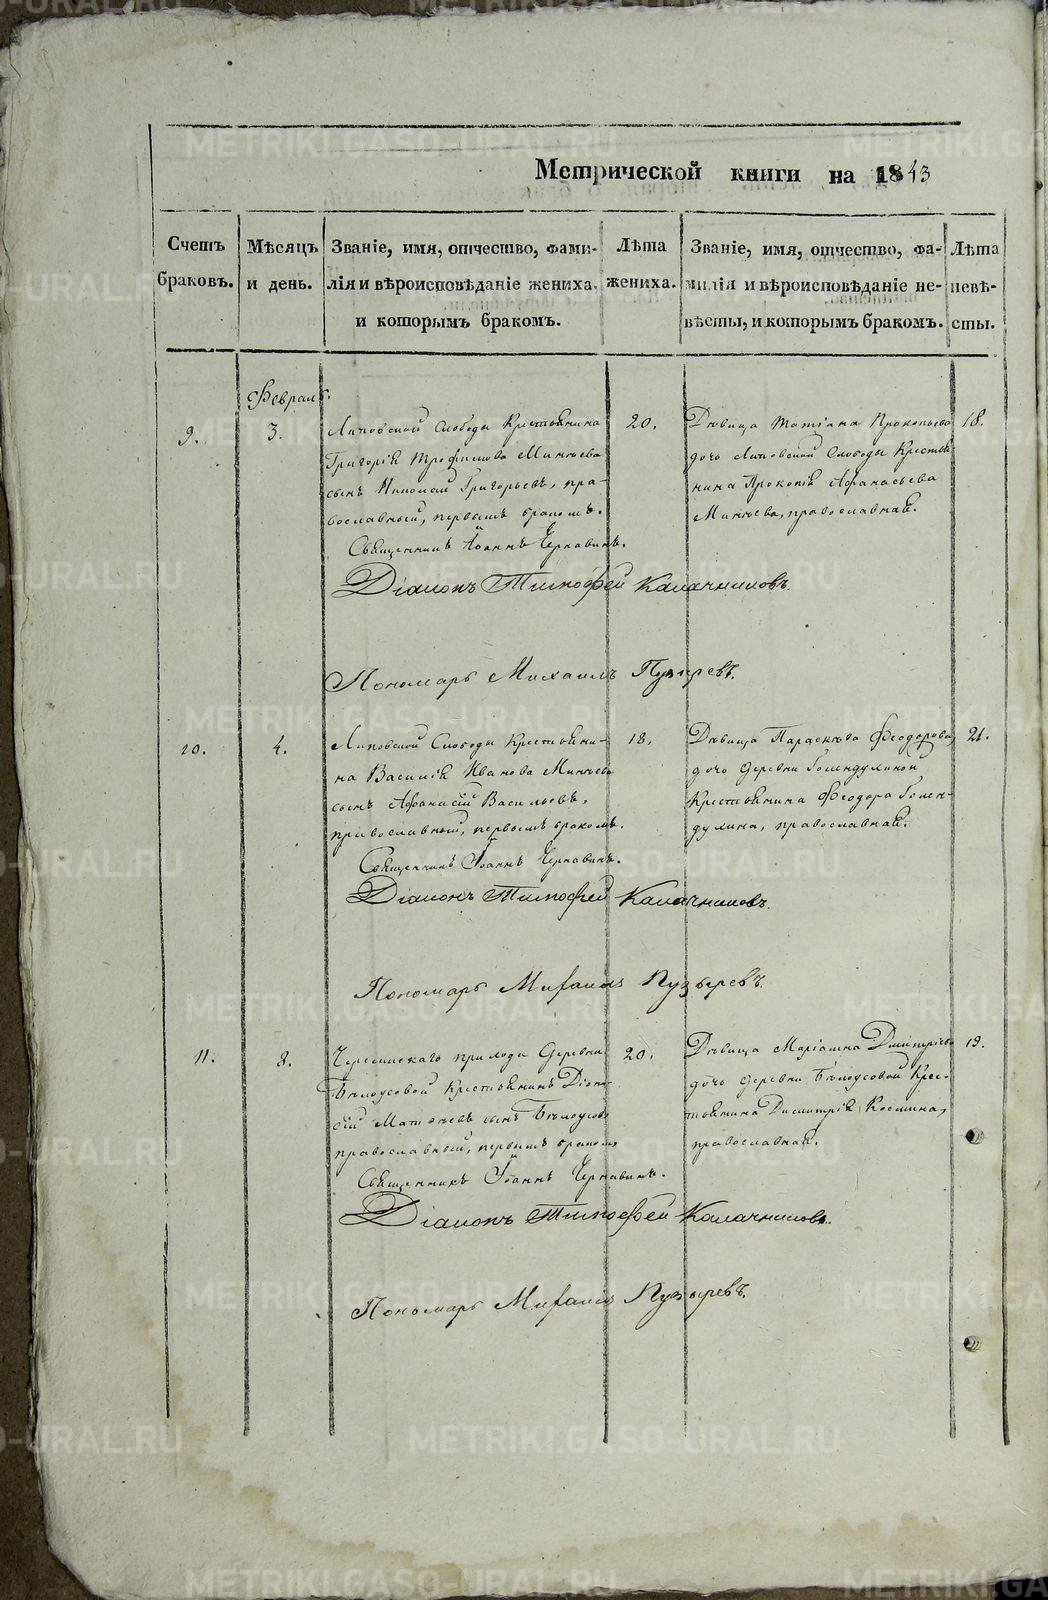 Метрической книги на 1843
Счетъ браковъ.
Мѣсяцъ и день.
Званіе, имя, отчество, фами-
лія и вѣроисповѣданіе жениха,
и которымъ бракомъ.
Лѣта
жениха.
Званіе, имя, отчество, фа-
милія и вѣроисповѣданіе не-
вѣсты, и которымъ бракомъ.
Лѣта
невѣ-
сты.
Февраль.
9.
3.
Липовской Слободы Крестьянина
Григорія Трофимова Минѣева
сынъ Николай Григорьевъ, пра-
вославный, первымъ бракомъ.
20.
Дѣвица Татіана Прокопьева
дочь Липовской Слободы Крестья-
нина Прокопія Афанасьева
Минѣева, православная.
18.
Священникъ Іоаннъ Чернавинъ.
Діаконъ Тимофей Калачниковъ.
Пономарь Михаилъ Пузыревъ.
10.
4.
Липовской Слободы Крестьяни-
на Василія Иванова Минѣева
сынъ Афанасій Васильевъ,
православный, первымъ бракомъ.
18.
Дѣвица Параскѣва Феодорова,
дочь деревни Голендухиной
Крестьянина Феодора Голен-
духина, православная.
21.
Священникъ Іоаннъ Чернавинъ.
Діаконъ Тимофей Калачниковъ.
Пономарь Михаилъ Пузыревъ.
11.
8.
прихода Деревни
Бѣлоусовой Крестьянинъ Діони-
сій Матвѣевъ сынъ Бѣлоусовъ
православный, первымъ бракомъ
20.
Дѣвица Маріамна Дмитріева
дочь деревни Бѣлоусовой Крес-
тьянина Димитрія Костина,
православная.
19.
Священникъ Іоаннъ Чернавинъ.
Діаконъ Тимофей Калачниковъ.
Пономарь Михаилъ Пузыревъ.
METRIKI.GASO-URAL.RU